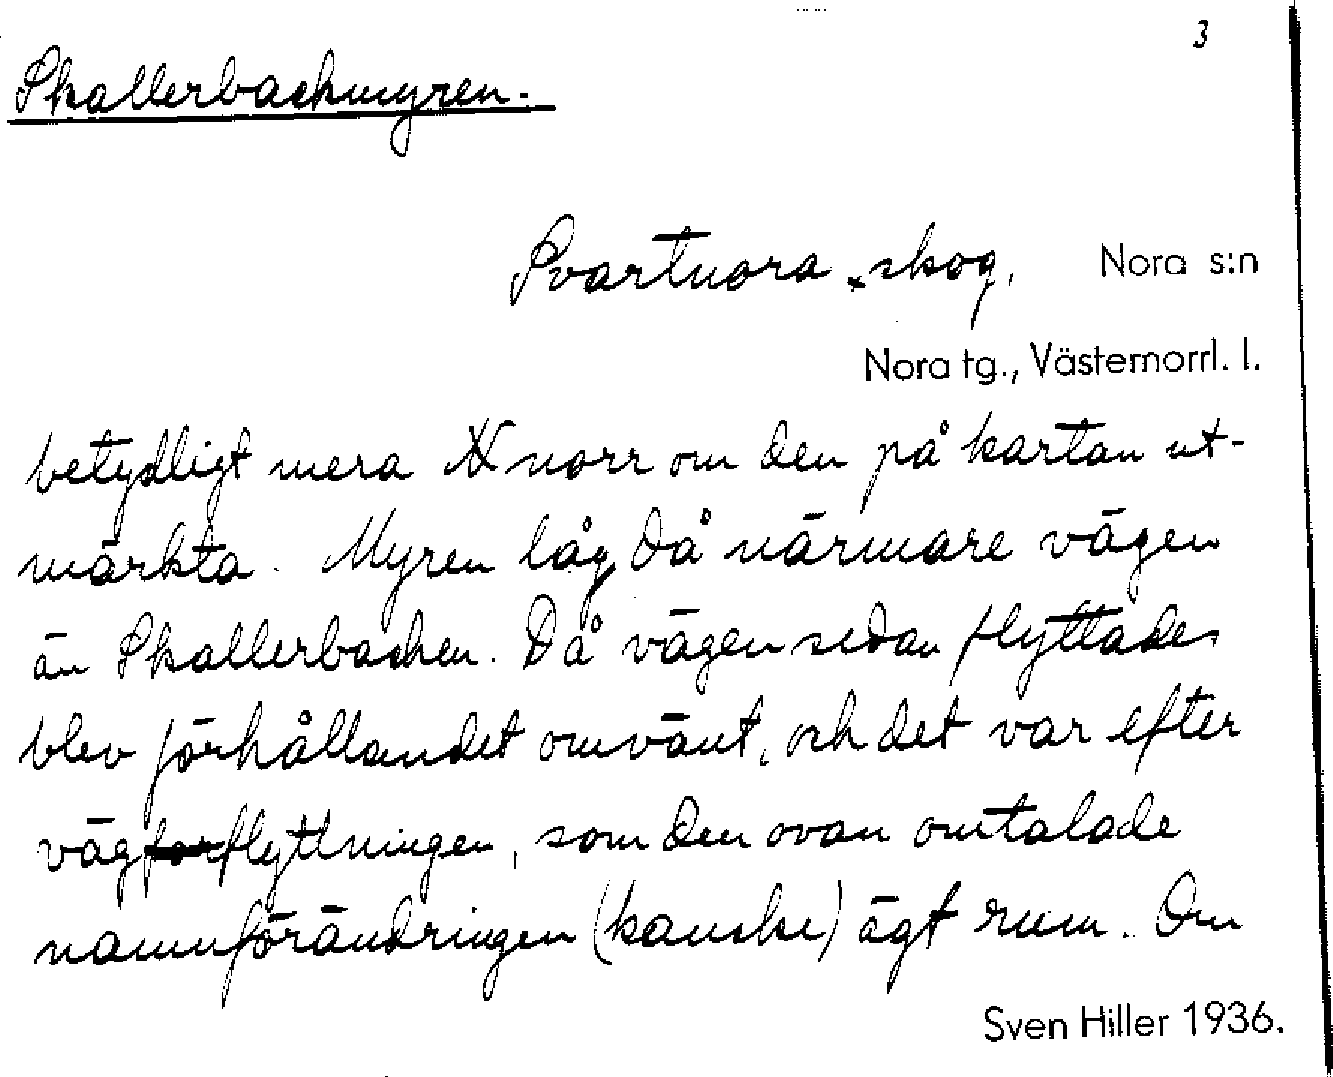 3
Skallerbackmyren.
Svartnora skog. Nora s:n
Nora tg., Västernorrl. l.
betydligt mera N norr om den på kartan ut-
märkta. Myren låg då närmare vägen
än Skallerbacken. Då vägen sedan flyttades
blev förhållandet omvänt, och det var efter
vägflyttningen, som den ovan omtalade
namnförändringen (kanske) ägt rum. Om
Sven Hiller 1936.